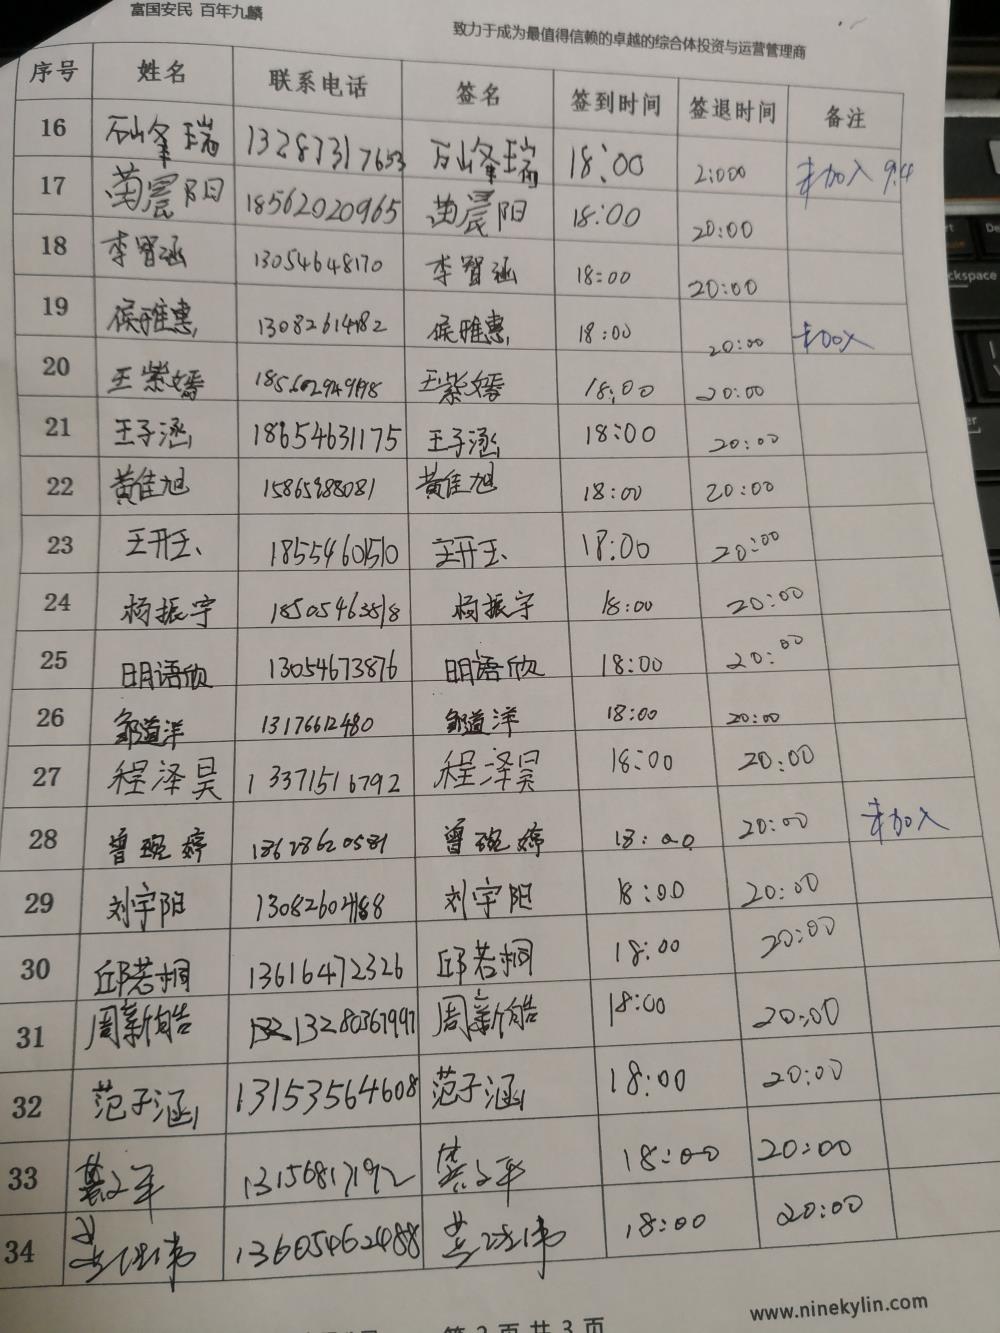 富国安民 百年九麟
致力于成为最值得信赖的卓越的综合体投资与运营管理商
序号 姓名 联系电话 签名 签到时间 签退时间 备注
16 石峰瑞 13287317653 石峰瑞 18:00 2:000 未加入 9.4
17 苗晨阳 18562020965 苗晨阳 18:00 20:00
18 李智涵 13054648170 李智涵 18:00 20:00
19 侯雅惠 13082614182 侯雅惠 18:00 20:00 未加入
20 王紫嫣 王紫嫣 18:00 20:00
21 王子涵 18654631175 王子涵 18:00 20:00
22 黄佳旭 15865988081 黄佳旭 18:00 20:00
23 王开玉 18554601510 王开玉 18:00 20:00
24 杨振宇 18505463818 杨振宇 18:00 20:00
25 明语欣 13054673876 明语欣 18:00 20:00
26 邹道洋 13176612480 邹道洋 18:00 20:00
27 程泽昊 13371516792 程泽昊 18:00 20:00
28 曾琬婷 18628620581 曾琬婷 18:00 20:00 未加入
29 刘宇阳 刘宇阳 18:00 20:00
30 邱若桐 13616472326 邱若桐 18:00 20:00
31 周新皓 13280367997 周新皓 18:00 20:00
32 范子涵 13153564608 范子涵 18:00 20:00
33 13156817192 18:00 20:00
34 13605462488 18:00 20:00
第2页共3页
www.ninekylin.com